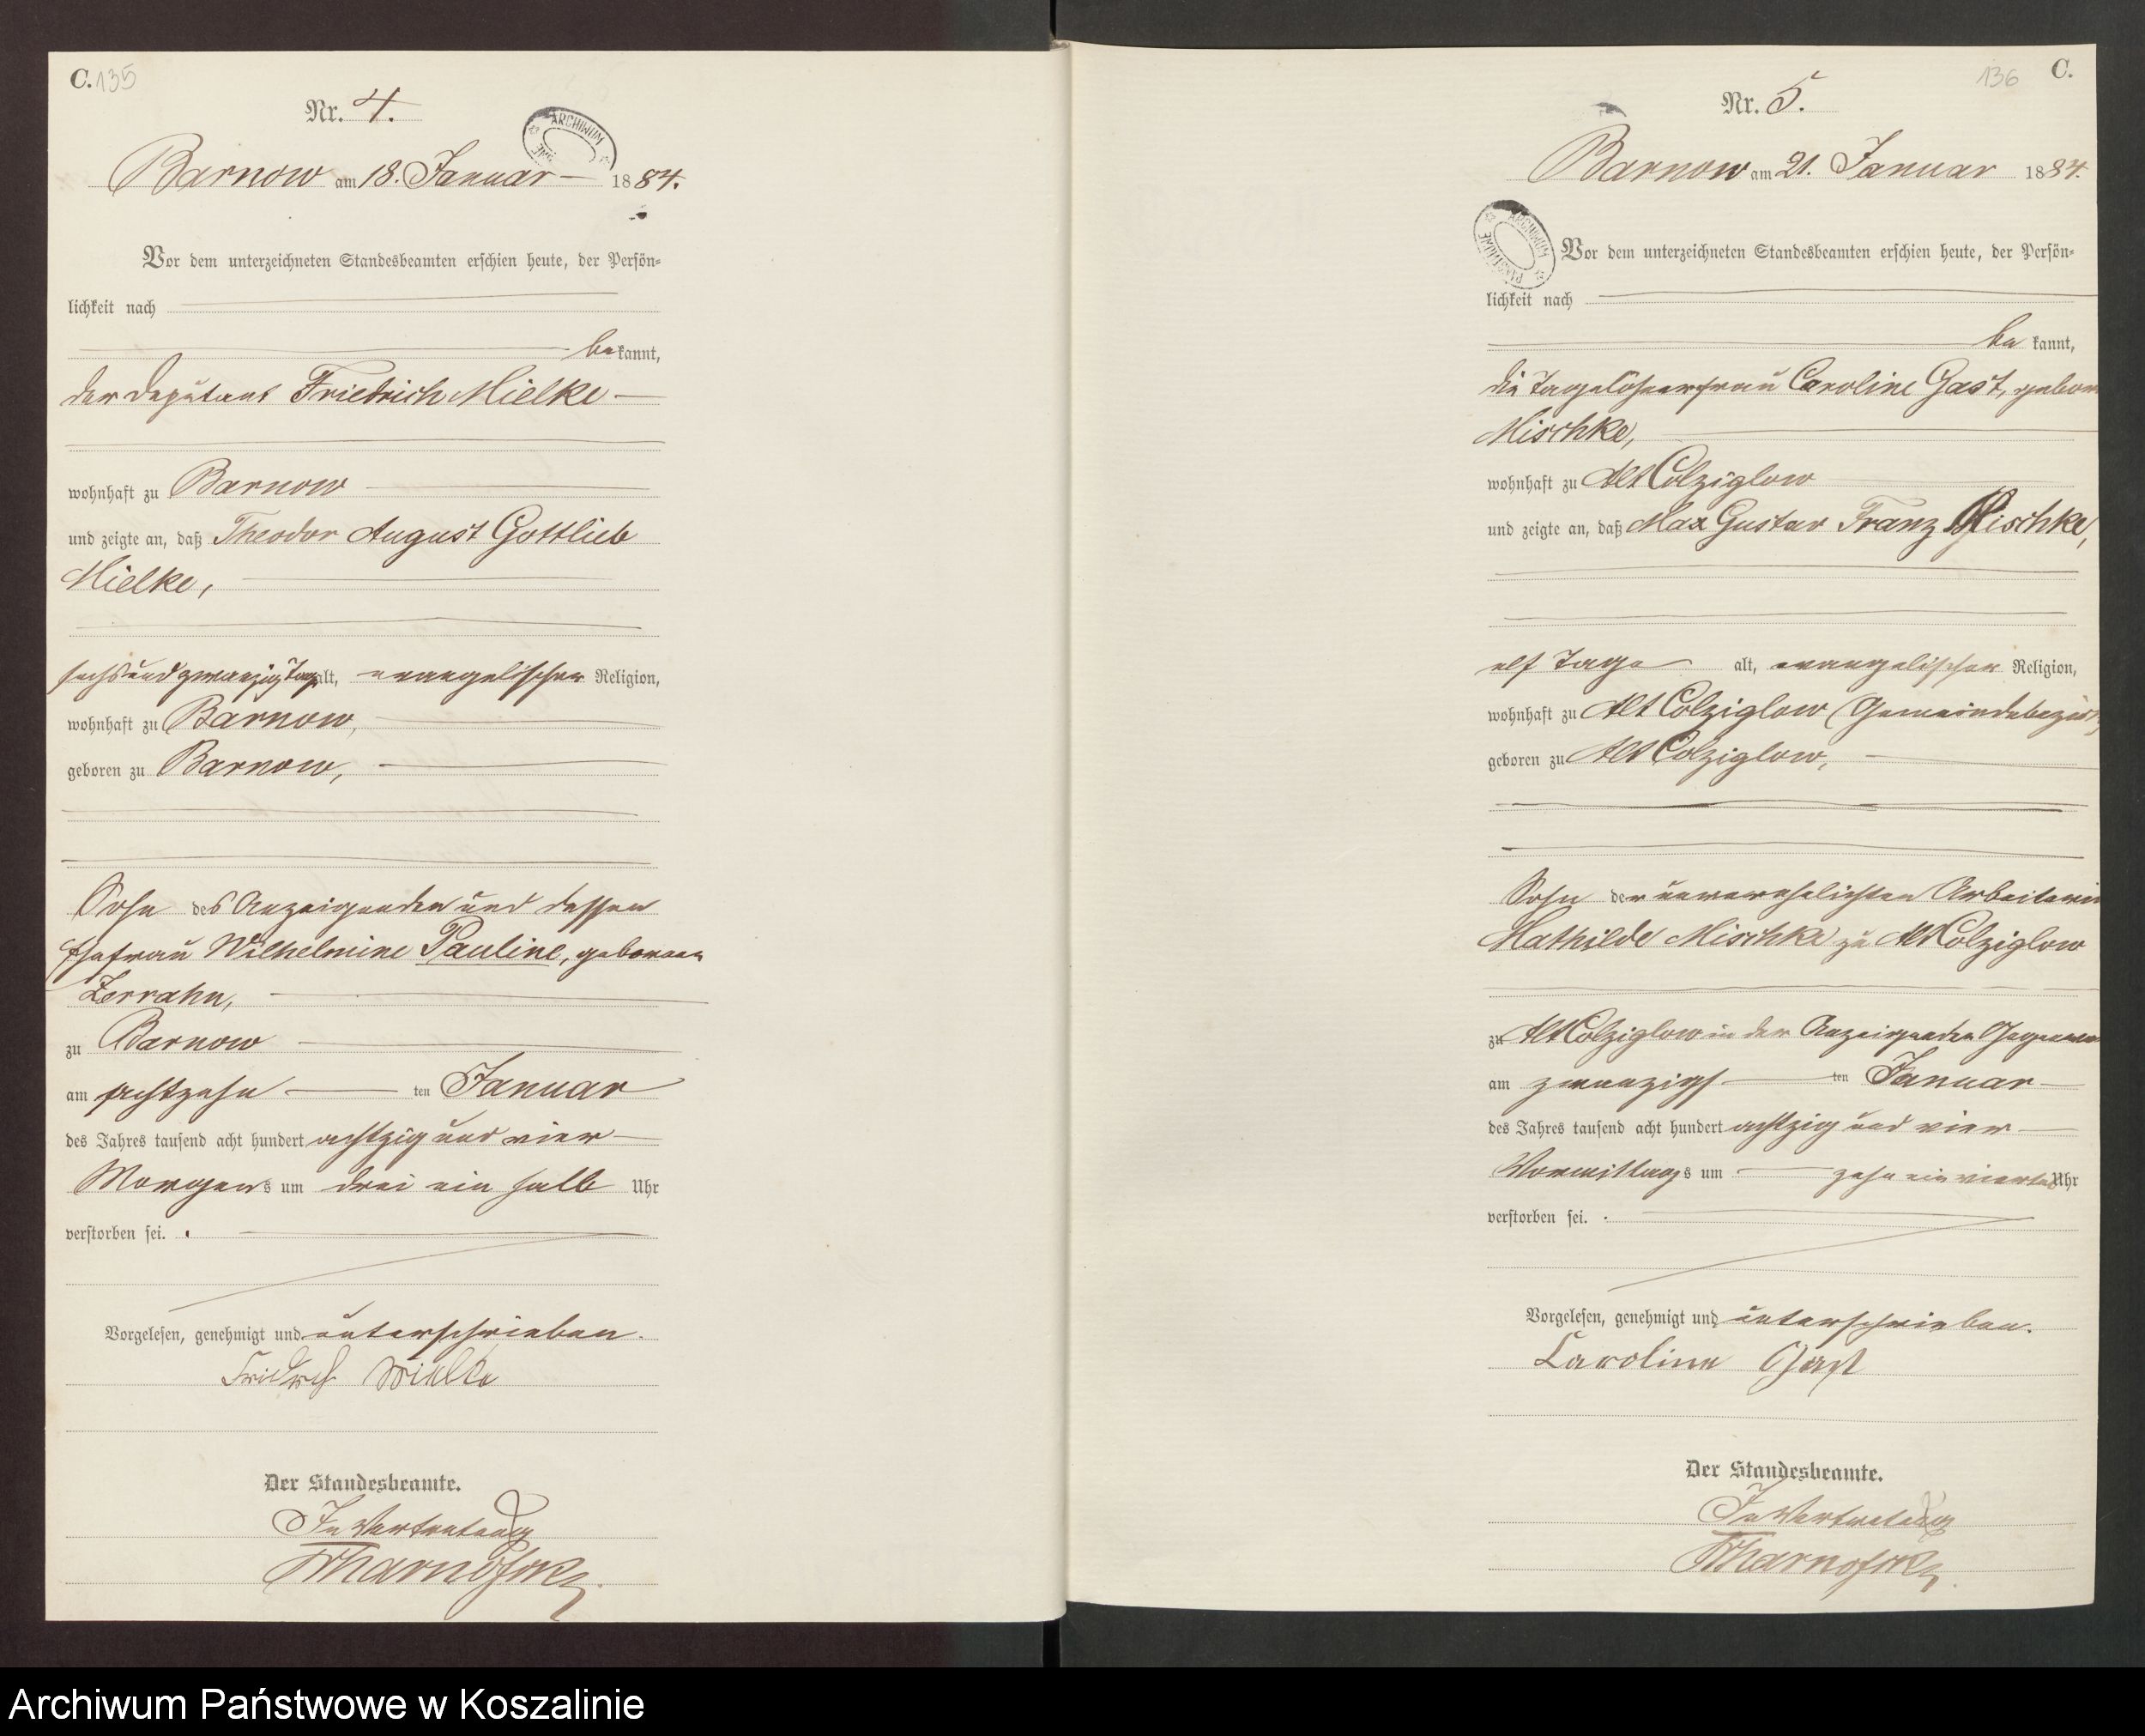 C. 135
Nr. 4.
ARCHIWUM
Barnow am 18. Januar 1884.
Vor dem unterzeichneten Standesbeamten erschien heute, der Persön=
lichkeit nach
bekannt,
der Deputant Friedrich Mielke
wohnhaft zu Barnow
und zeigte an, daß Theodor August Gottlieb
Mielke,
sechsundzwanzig Tage alt, evangelischer Religion,
wohnhaft zu Barnow,
geboren zu Barnow,
Sohn des Anzeigenden und dessen
Ehefrau Wilhelmine Pauline, geborenen
Zerrahn,
zu Barnow
am achtzehn ten Januar
des Jahres tausend acht hundert achtzig und vier
Morgens um drei ein halb Uhr
verstorben sei.
Vorgelesen, genehmigt und unterschrieben.
Friedrich Mielke
Der Standesbeamte.
In Vertretung
136 C.
Nr. 5.
Barnow am 21. Januar 1884.
ARCHIWUM PAŃSTWOWE
Vor dem unterzeichneten Standesbeamten erschien heute, der Persön=
lichkeit nach
bekannt,
die Tagelöhnerfrau Caroline Gast, gebor
Mischke,
wohnhaft zu Alt Colziglow
und zeigte an, daß Max Gustav Franz Mischke,
elf Tage alt, evangelischer Religion,
wohnhaft zu Alt Colziglow (Gemeindebezirk)
geboren zu Alt Colziglow,
Sohn der unverehelichten Arbeiterin
Mathilde Mischke zu Alt Colziglow
zu Alt Colziglow in der Anzeigenden Gegenwart
am zwanzigs ten Januar
des Jahres tausend acht hundert achtzig und vier
Vormittags um zehn ein viertel Uhr
verstorben sei.
Vorgelesen, genehmigt und unterschrieben.
Caroline Gast
Der Standesbeamte.
In Vertretung
Archiwum Państwowe w Koszalinie